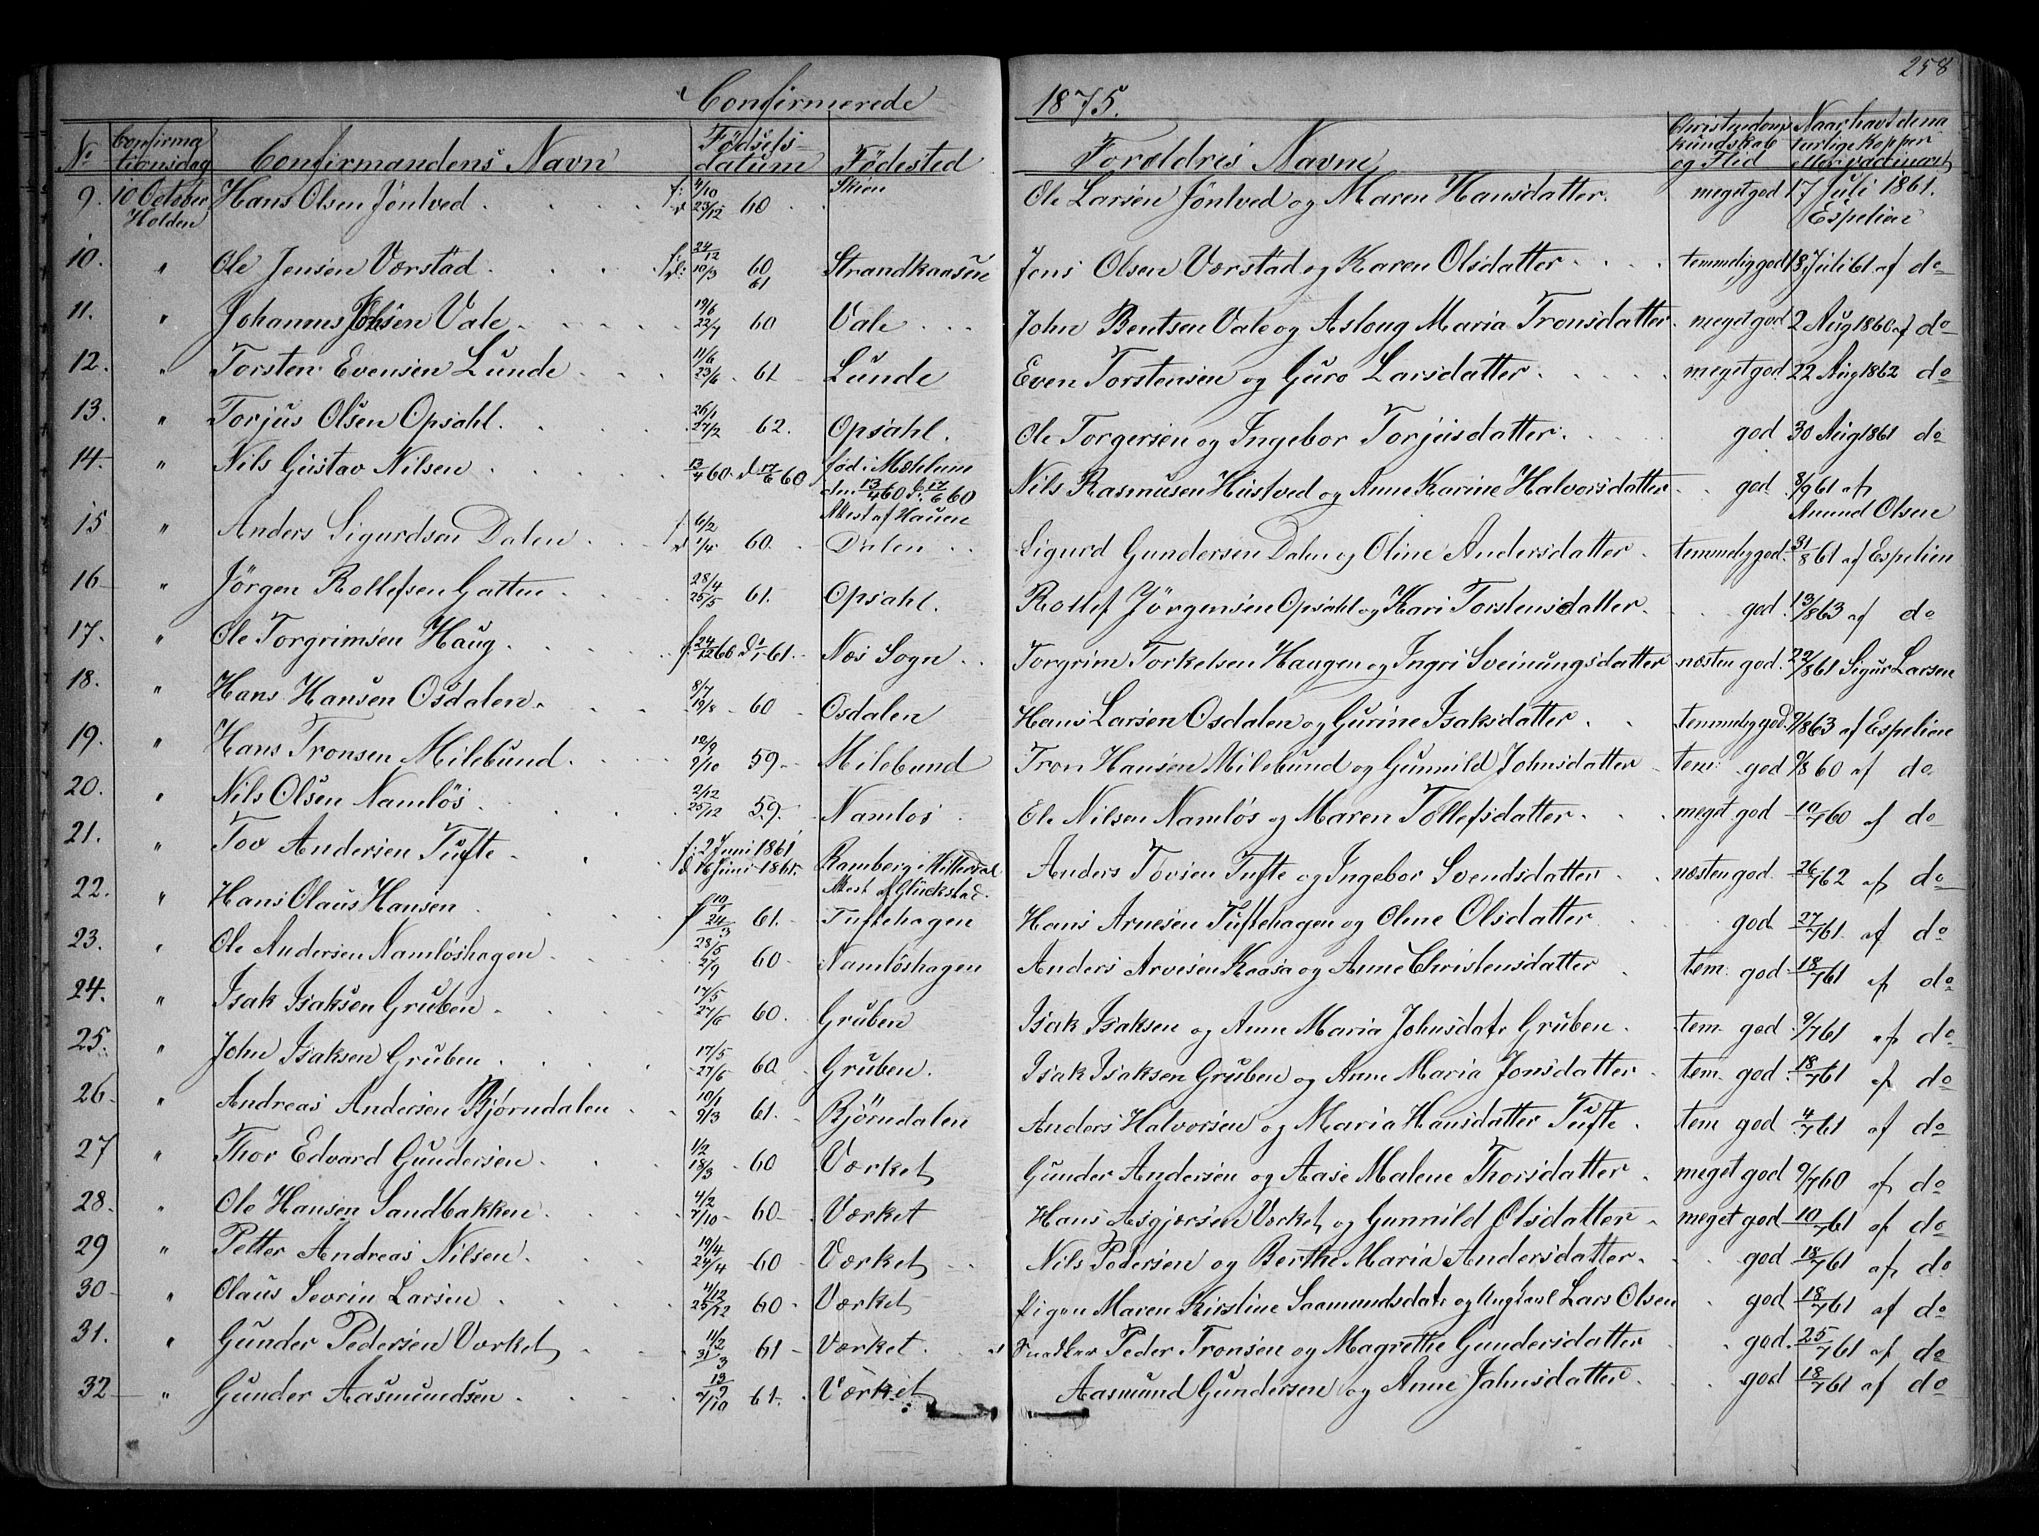 258
Confirmerede 1875.
No Confirmationsdag Confirmandens Navn Fødselsdatum Fødested Forældres Navne Christendomskundskab og Flid Naar havt de naturlige Kopper eller vaccineret
9. 10 October Holden Hans Olsen Jöntved f: 4/10 d 23/12 60 Skien Ole Larsen Jöntved og Maren Hansdatter. meget god 17 Juli 1861. Espelien
10. " Ole Jensen Værstad f: 24/12 60 d: 10/3 61 Strandkaasene Jens Olsen Værstad og Karen Olsdatter temmelig god 18 Juli 61 af do
11. " Johannes Johnsen Vale 19/6 22/7 60 Vale John Bentsen Vale og Asloug Maria Tronsdatter meget god 2 Aug 1860 af do
12. " Torsten Evensen Lunde 11/6 23/6 61 Lunde Even Torstensen og Guro Larsdatter meget god 22 Aug 1862 do
13. " Torjus Olsen Opsahl 26/1 27/2 62. Opsahl. Ole Torgersen og Ingebor Torjusdatter god 30 Aug 1861 do
14. " Nils Gustav Nilsen 13/4 60 d 17/6 60 fød i Mælum den 13/4 60 d. 17/6 60 Attest af Hauen Nils Rasmusen Hustved og Anne Karine Halvorsdatter god 8/9 61 af Amund Olsen
15 " Anders Sigurdsen Dalen f 6/2 d 1/4 60. Dalen Sigurd Gundersen Dalen og Oline Andersdatter temmelig god 31/8 61 af Espelien
16 " Jörgen Rollefsen Gatten 28/4 25/5 61. Opsahl. Rollef Jörgensen Opsahl og Kari Torstensdatter god 13/8 63 af do
17. " Ole Torgrimsen Haug. f. 24/12 60 d 1/1 61. Næs Sogn Torgrim Torkelsen Haugen og Ingri Sveinungsdatter næsten god. 22/8 61 Sigur Larsen
18. " Hans Hansen Osdalen 8/7 19/8 60 Osdalen Hans Larsen Osdalen og Gurine Isaksdatter temmelig god 9/8 63 af Espelien
19. " Hans Tronsen Milebund 12/9 2/10 59. Milebund Tron Hansen Milebund og Gunnild Johnsdatter tem: god 9/8 60 af do
20. " Nils Olsen Namlös 2/12 25/12 59. Namlös Ole Nilsen Namlös og Maren Tollefsdatter meget god 10/7 60 af do
21. " Tov Andersen Tufte f: 2 Juni 1861 d 16 Juni 1861. Ramberg i Hitterdal Attest af Glückstad. Anders Tovsen Tufte og Ingebor Svendsdatter næsten god 26/7 62 af do
22. " Hans Olaus Hansen f 10/1 24/3 61. Tuftehagen Hans Arnesen Tuftehagen og Oline Olsdatter god 27/7 61. af do
23. " Ole Andersen Namlöshagen 28/5 2/9 60. Namlöshagen Anders Arvesen Kaasa og Anne Christensdatter tem. god 18/7 61 af do
24. " Isak Isaksen Gruben 17/5 27/6 60. Gruben Isak Isaksen og Anne Maria Johnsdatr Gruben. tem god 9/7 61 af do
25. " John Isaksen Gruben 17/5 27/6 60 Gruben. Isak Isaksen Gruben og Anne Maria Jonsdatter tem. god. 18/7 61 af do
26 " Andreas Andersen Bjørndalen 10/1 9/3 61. Bjørndalen Anders Halvorsen og Maria Hansdatter Tufte. tem god 4/7 61 af do
27 " Thor Edvard Gundersen 1/2 18/3 60 Værket Gunder Andersen og Aase Malene Thorsdatter meget god 9/7 60 af do
28. " Ole Hansen Sandbakken 4/2 7/10 60 Værket Hans Asgjærsen Værket og Gunnild Olsdatter meget god 10/7 61 af do
29 " Petter Andreas Nilsen. 19/4 24/4 60 Værket Nils Pedersen og Berthe Maria Andersdatter. god 18/7 61 af do
30 " Olaus Severin Larsen 4/12 25/12 60 Værket Pigen Maren Kirstine Saamundsdatr og Ungkarl Lars Olsen god 18/7 61 af do
31. " Gunder Pedersen Værket 11/2 31/3 61 Værket Peder Tronsen og Magrethe Gundersdatter god. 25/7 61 af do
32 " Gunder Aasmundsen 13/9 2/10 61. Værket Aasmund Gundersen og Anne Jahnsdatter god 18/7 61 af do